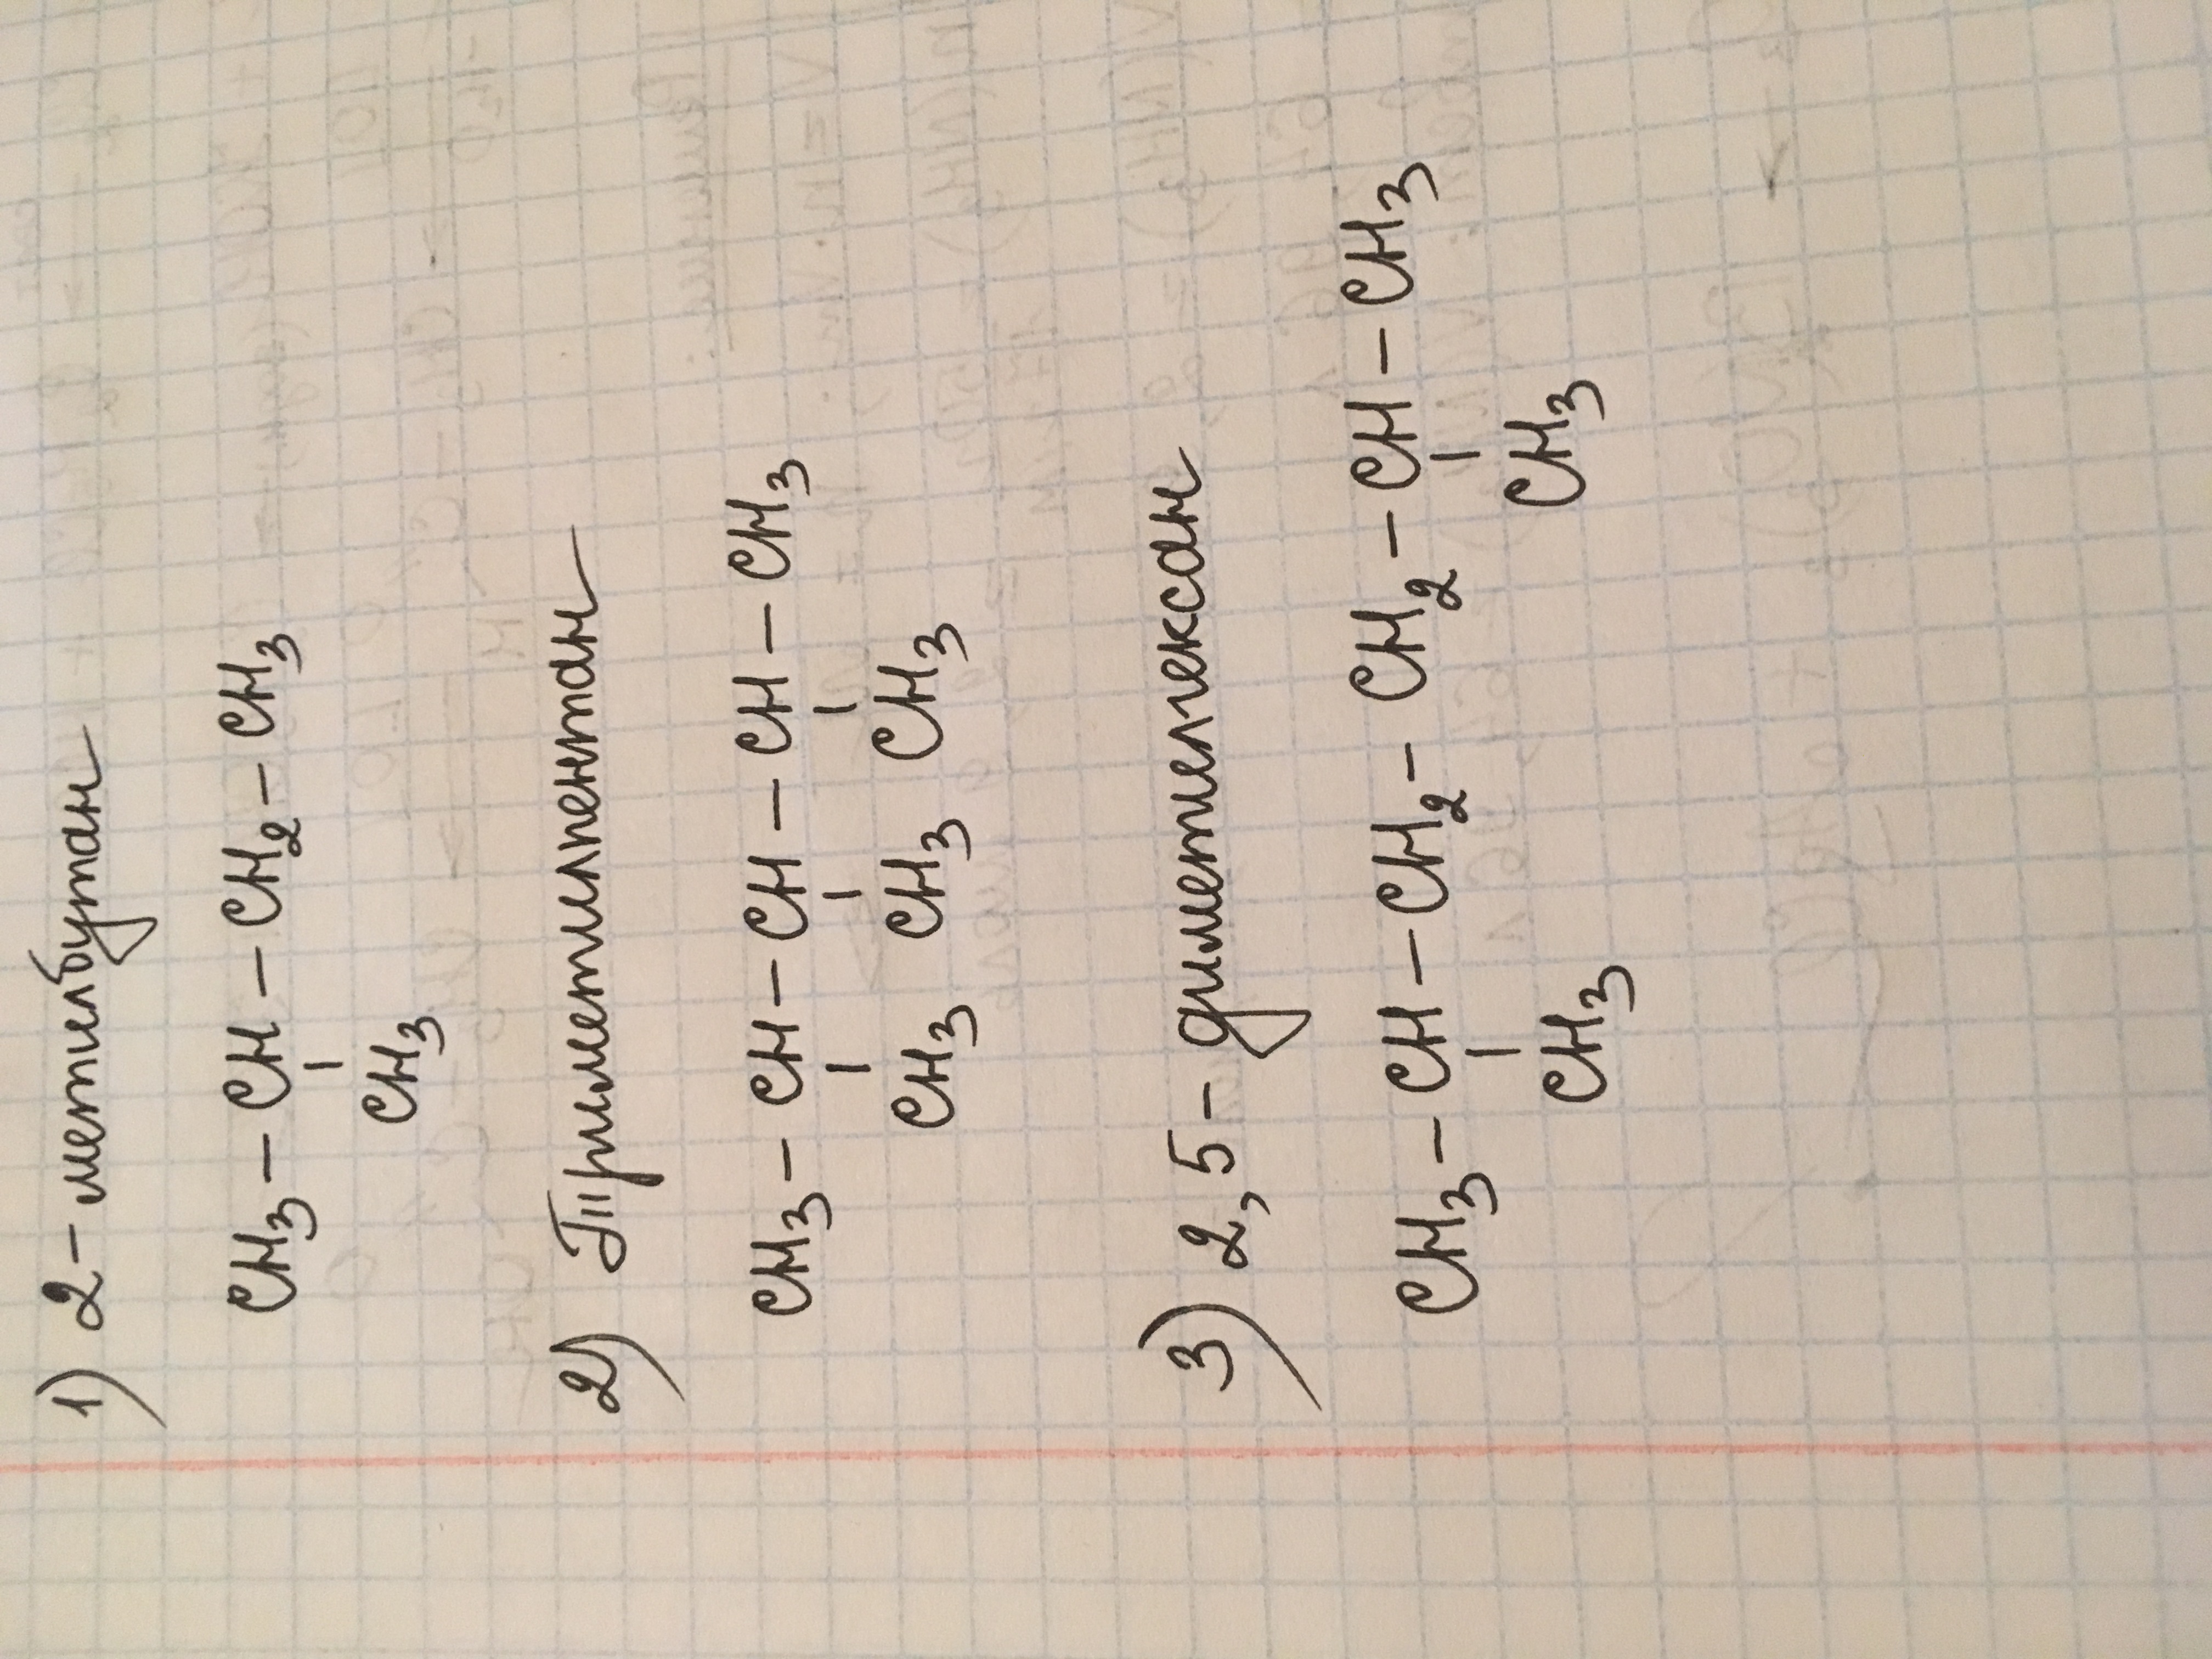 1) 2-метилбутан
CH₃ – CH – CH₂ – CH₃
CH₃
2) Триметилпентан
CH₃ – CH – CH – CH – CH₃
CH₃ CH₃ CH₃
3) 2,5 - диметилгексан
CH₃ – CH – CH₂ – CH₂ – CH – CH₃
CH₃ CH₃